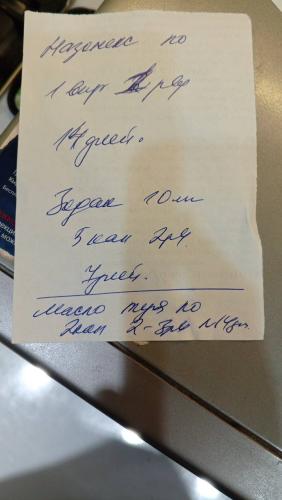 Назонекс по
1 впр 1 р/д
14 дней.
Зодак 10 мл
5 кап 2р/д
7 дней.
Масло туя по
2кап 2-3р/д N14дн.